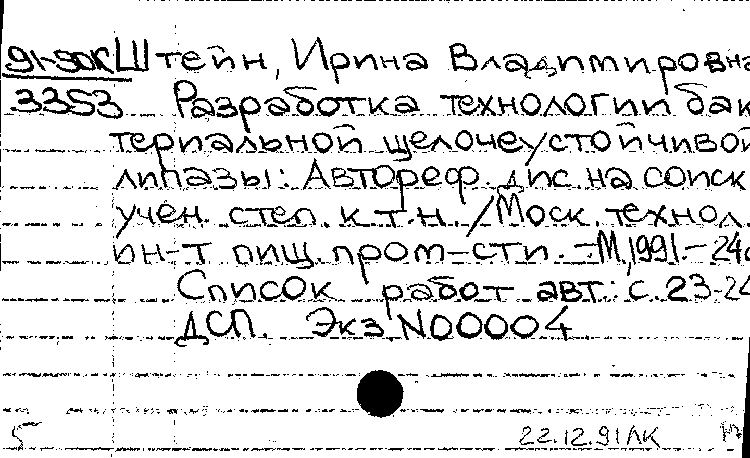 91-90К Штейн, Ирина Владимировна
3353 Разработка технологии бак
териальной щелочеустойчивой
липазы: Автореф. дис. на соиск.
учен. степ. к.т.н. /Моск. технол.
ин-т пищ. пром-сти. -М., 1991.- 24с
Список работ авт.: с.23-24
ДСП. Экз.N00004
5 22.12.91 ЛК